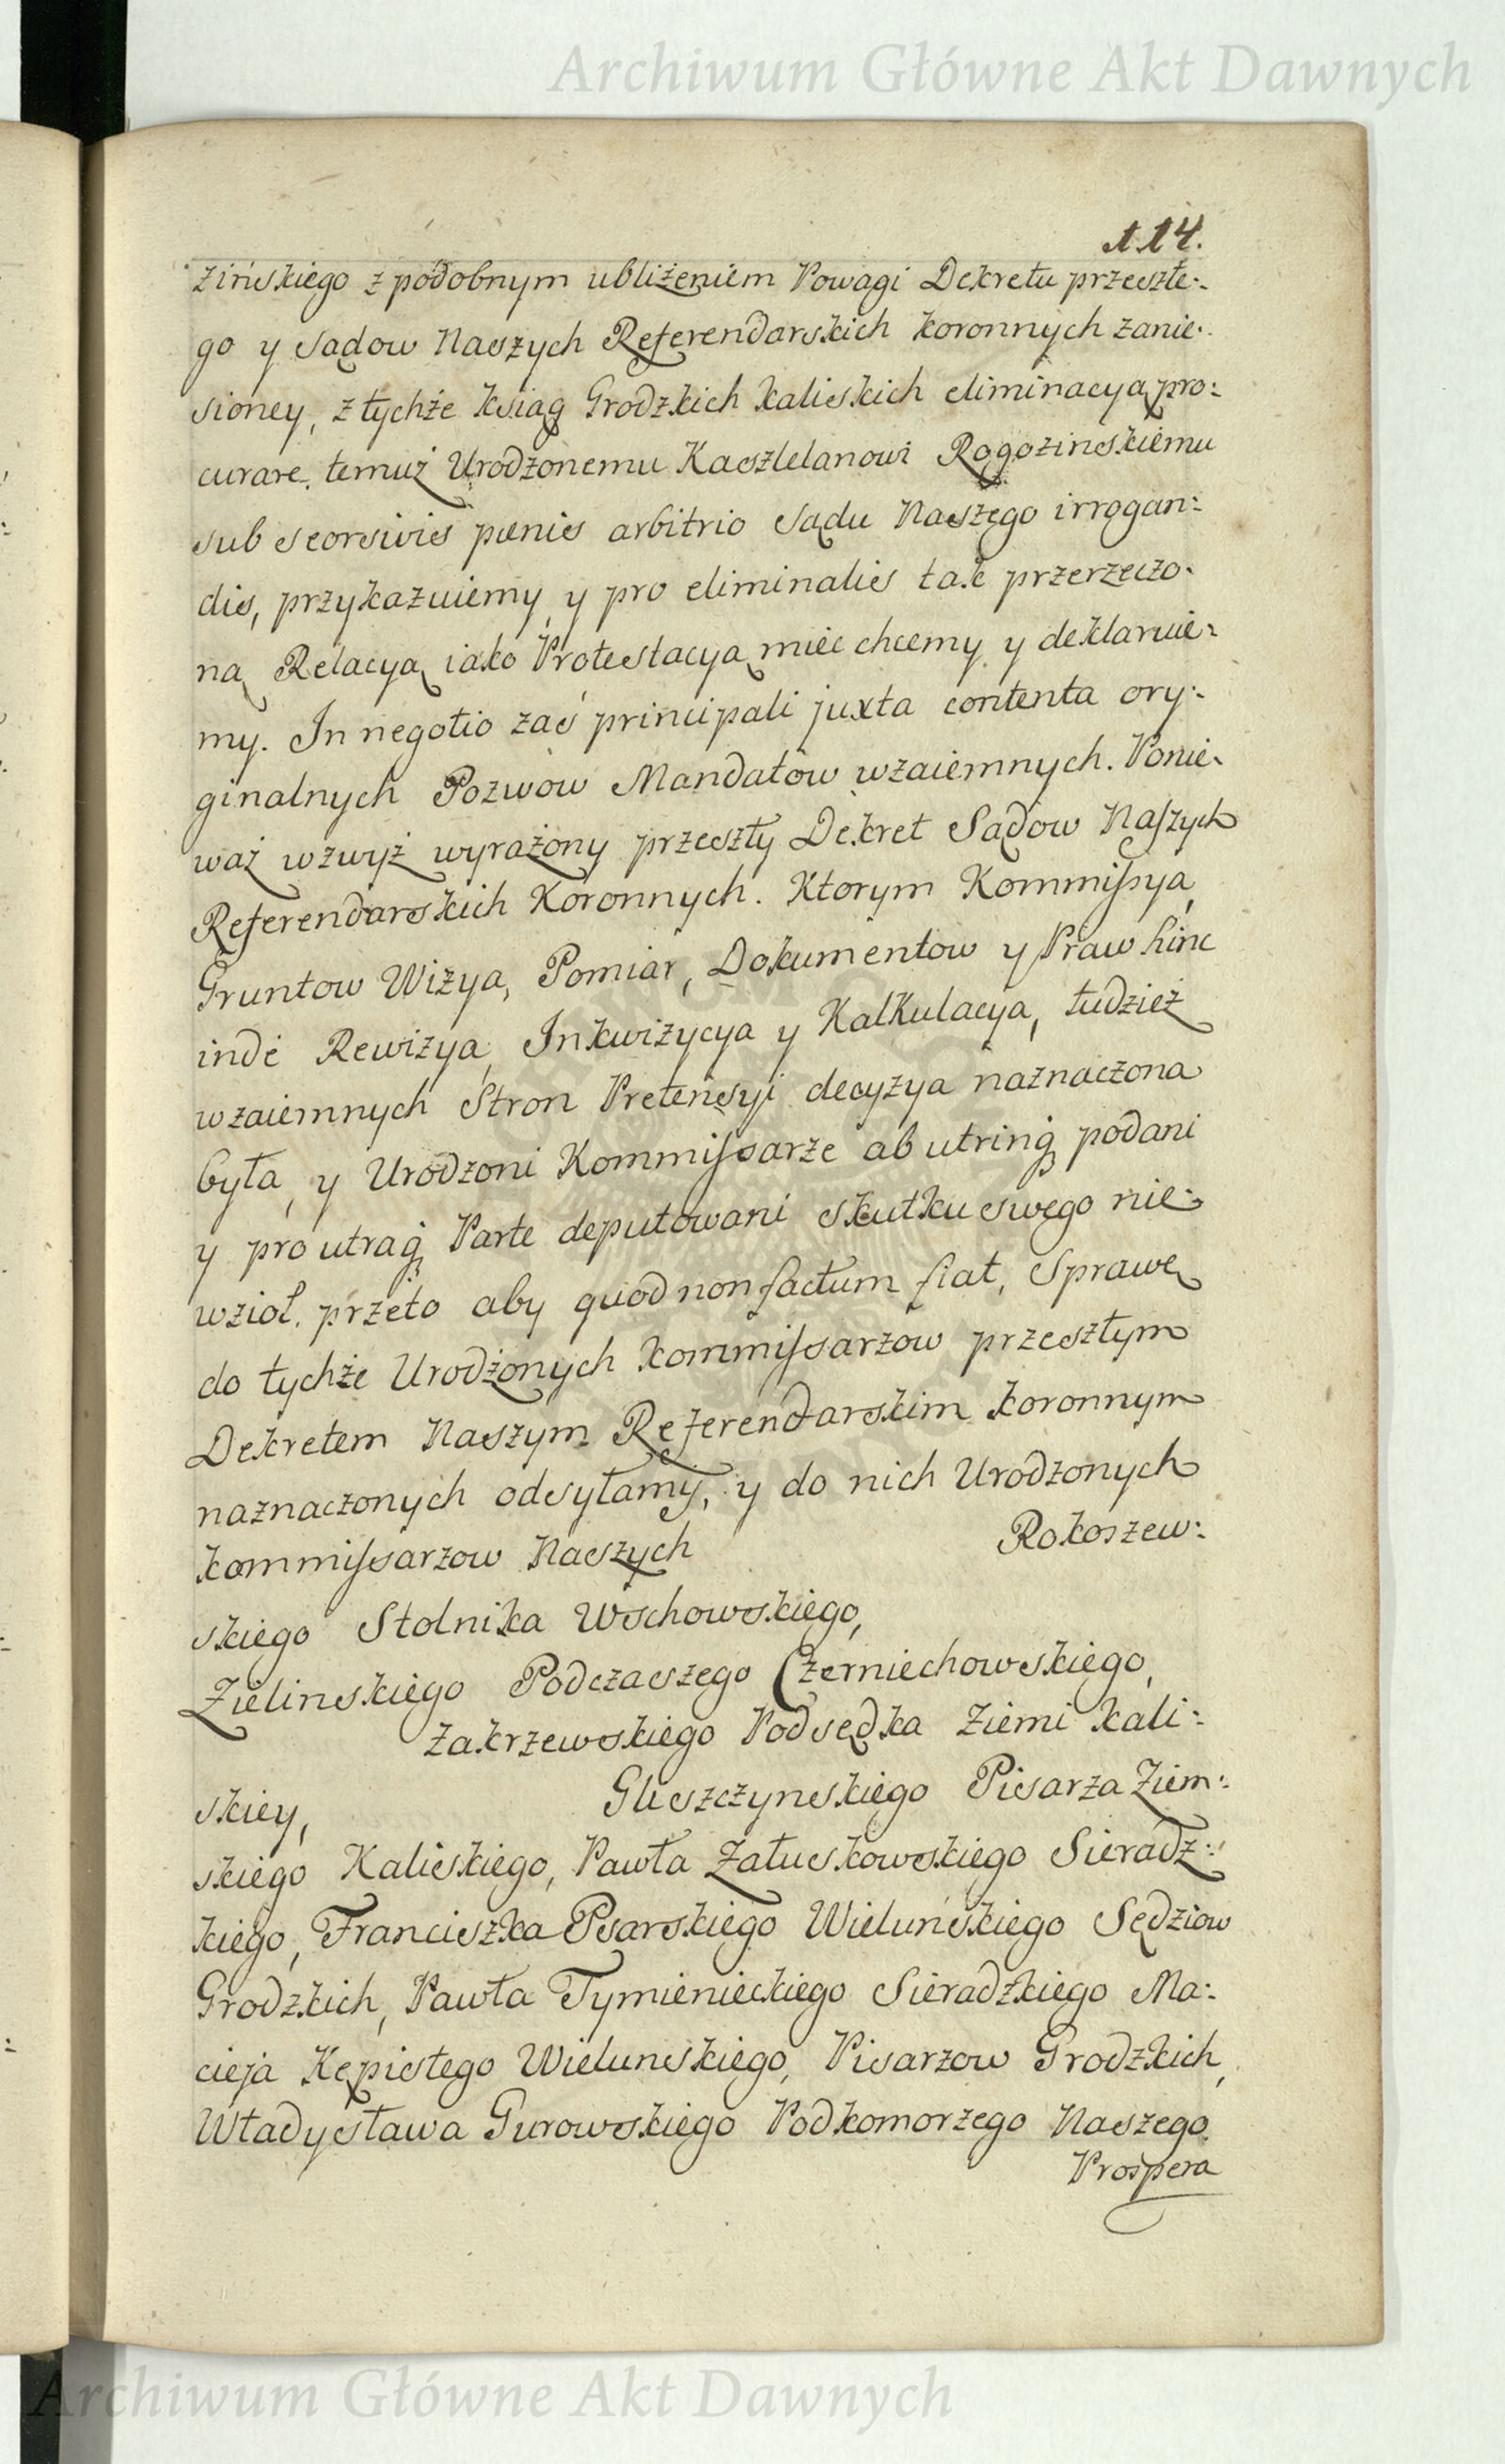 Archiwum Główne Akt Dawnych
114.
zińskiego z podobnym ubliżeniem Powagi Dekretu przeszłe:
go y Sądow Naszych Referendarskich koronnych zanie:
sioney, z tychże Ksiąg Grodzkich kaliskich eliminacyą pro:
curare, temuż Urodzonemu Kasztelanowi Rogozinskiemu
sub seorsivis pænis arbitrio Sądu Naszego irrogan:
dis, przykazuiemy, y pro eliminatis tak przerzeczo:
ną Relacyą iako Protestacyą mieć chcemy y deklaruie:
my. In negotio zaś principali juxta contenta ory:
ginalnych Pozwow Mandatow wzaiemnych. Ponie:
waż wzwyż wyrażony przeszły Dekret Sądow Naszych
Referendarskich Koronnych. Ktorym Kommissya,
Gruntow Wizya, Pomiar, Dokumentow y Praw hinc
inde Rewizya, Inkwizycya y Kalkulacya, tudzież
wzaiemnych Stron Pretensyi decyzya naznaczona
była, y Urodzoni Kommissarze ab utrinq podani
y pro utraq Parte deputowani skutku swego nie:
wzioł, przeto aby quod non factum fiat, Sprawę
do tychże Urodzonych Kommissarzow przeszłym
Dekretem Naszym Referendarskim koronnym
naznaczonych odsyłamy, y do nich Urodzonych
kommissarzow Naszych Rokoszew:
skiego Stolnika Wschowskiego,
Zielinskiego Podczaszego Czerniechowskiego,
Zakrzewskiego Podsędka Ziemi kali:
skiey, Gliszczynskiego Pisarza Ziem:
skiego Kaliskiego, Pawła Załuskowskiego Sieradz:
kiego, Franciszka Psarskiego Wieluńskiego Sędziow
Grodzkich, Pawła Tymienieckiego Sieradzkiego Ma:
cieja Kępistego Wielunskiego, Pisarzow Grodzkich,
Władysława Gurowskiego Podkomorzego Naszego
Prospera
Archiwum Główne Akt Dawnych